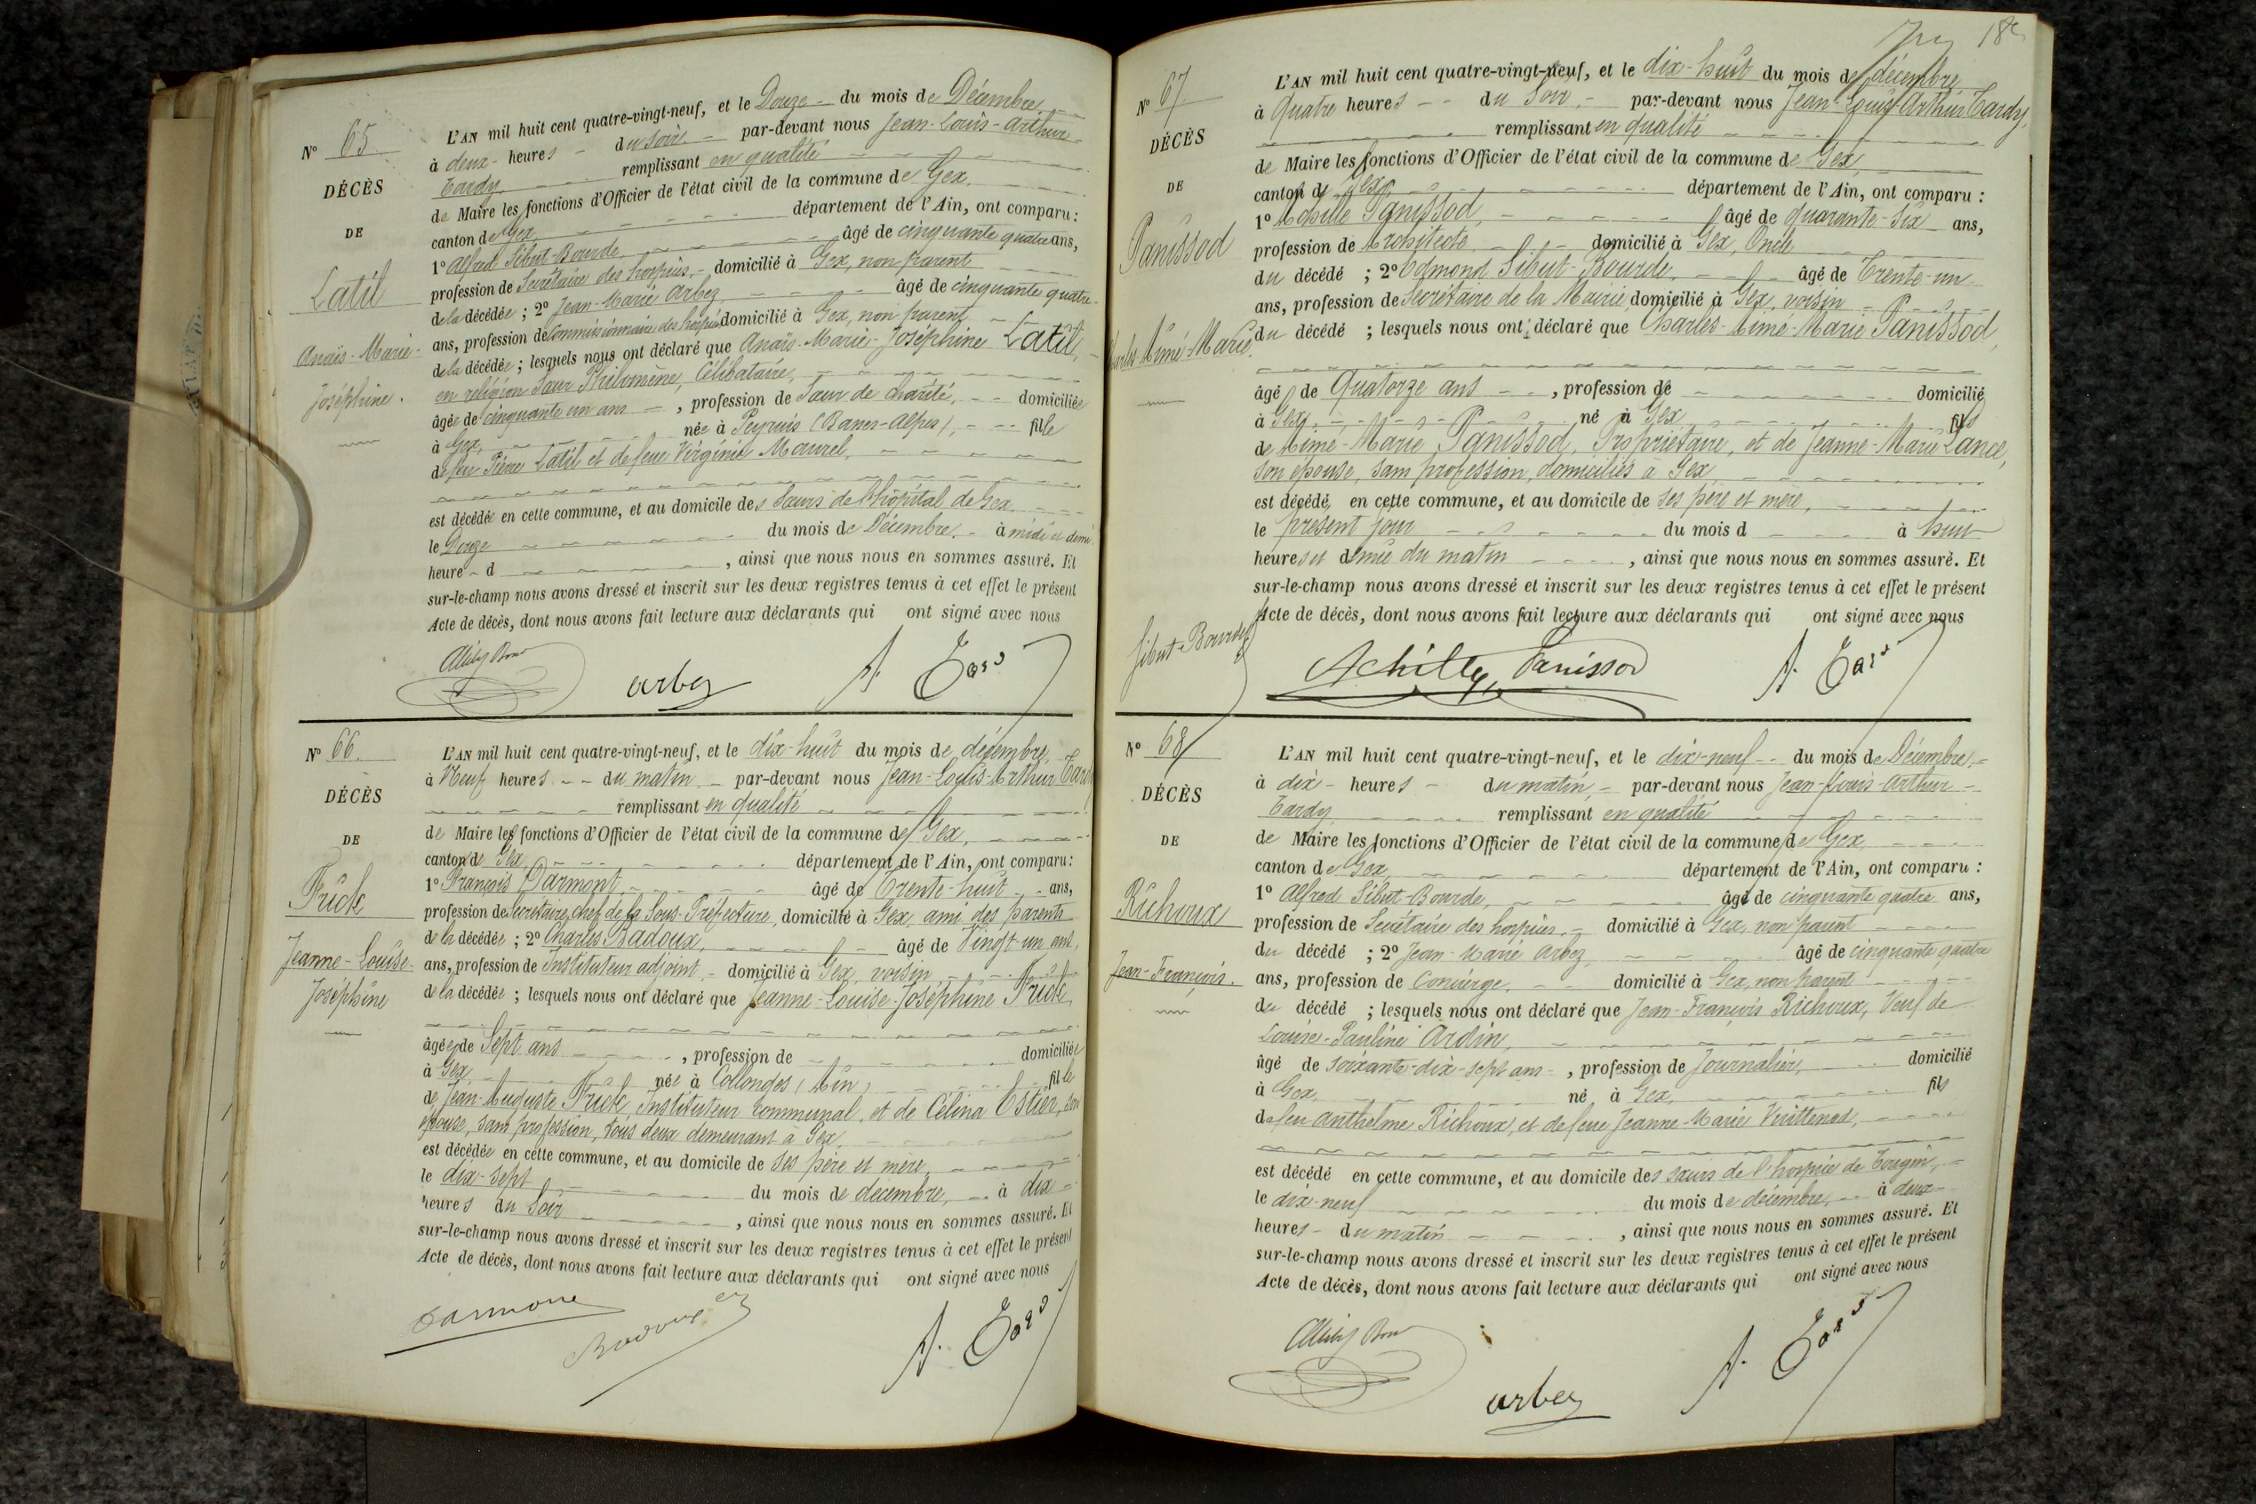 N° 65
DÉCÈS
DE
Latil
Anaïs-Marie-
Joséphine.
L'AN mil huit cent quatre-vingt-neuf, et le Douze - du mois de Décembre
à deux - heures - du soir - par-devant nous Jean-Louis-Arthur
Tardy remplissant en qualité
de Maire les fonctions d'Officier de l'état civil de la commune de Gex
canton de Gex département de l'Ain, ont comparu :
1° Alfred Sibut-Bourde, âgé de cinquante quatre ans,
profession de Secrétaire des hospices, - domicilié à Gex, non parent
de la décédée ; 2° Jean-Marie Arbez âgé de cinquante quatre
ans, profession de commissionnaire des hospices domicilié à Gex, non parent
de la décédée ; lesquels nous ont déclaré que Anaïs-Marie-Joséphine Latil,
en religion Sœur Philomène, Célibataire,
âgée de cinquante un ans - , profession de Sœur de charité, - - domiciliée
à Gex, née à Peyruis (Basses-Alpes), - - - fille
de feu Pierre Latil et de feue Virginie Maurel,
est décédée en cette commune, et au domicile des Sœurs de l'hôpital de Gex
le Douze du mois de Décembre - à midi et demi
heure - d , ainsi que nous nous en sommes assuré. Et
sur-le-champ nous avons dressé et inscrit sur les deux registres tenus à cet effet le présent
Acte de décès, dont nous avons fait lecture aux déclarants qui ont signé avec nous
arbez A. Tardy
N° 66
DÉCÈS
DE
Frick
Jeanne-Louise-
Joséphine
L'AN mil huit cent quatre-vingt-neuf, et le dix-huit du mois de décembre,
à Neuf heures - - du matin - par-devant nous Jean-Louis-Arthur Tardy
remplissant en qualité
de Maire les fonctions d'Officier de l'état civil de la commune de Gex,
canton de Gex département de l'Ain, ont comparu :
1° François Darmont âgé de Trente-huit - - ans,
profession de Secrétaire chef de la Sous-Préfecture, domicilié à Gex, ami des parents
de la décédée ; 2° Charles Badoux, âgé de Vingt-un ans,
ans, profession de Instituteur adjoint - domicilié à Gex, voisin
de la décédée ; lesquels nous ont déclaré que Jeanne-Louise-Joséphine Frick,
âgée de Sept ans , profession de domiciliée
à Gex née à Collonges (Ain) fille
de Jean-Auguste Frick, Instituteur communal, et de Célina Estier, son
épouse, sans profession, tous deux demeurant à Gex,
est décédée en cette commune, et au domicile de ses père et mère,
le dix-sept du mois de décembre, à dix -
heures du soir , ainsi que nous nous en sommes assuré. Et
sur-le-champ nous avons dressé et inscrit sur les deux registres tenus à cet effet le présent
Acte de décès, dont nous avons fait lecture aux déclarants qui ont signé avec nous
Darmont Badoux A. Tardy
N° 67
DÉCÈS
DE
Panissod
Charles-Aimé-Marie.
L'AN mil huit cent quatre-vingt-neuf, et le dix-huit du mois de décembre
à Quatre heures - - du soir. - par-devant nous Jean-Louis-Arthur Tardy,
remplissant en qualité
de Maire les fonctions d'Officier de l'état civil de la commune de Gex,
canton de Gex, département de l'Ain, ont comparu :
1° Achille Panissod, âgé de quarante-six ans,
profession de Architecte domicilié à Gex, Oncle
du décédé ; 2° Edmond Sibut-Bourde, âgé de Trente-un
ans, profession de Secrétaire de la Mairie, domicilié à Gex, voisin
du décédé ; lesquels nous ont déclaré que Charles-Aimé-Marie Panissod,
âgé de Quatorze ans - - , profession de domicilié
à Gex, né à Gex fils
de Aimé-Marie Panissod, Propriétaire, et de Jeanne-Marie Lance,
son épouse, sans profession, domiciliés à Gex
est décédé en cette commune, et au domicile de ses père et mère,
le présent jour du mois d à huit
heures et demie du matin , ainsi que nous nous en sommes assuré. Et
sur-le-champ nous avons dressé et inscrit sur les deux registres tenus à cet effet le présent
Acte de décès, dont nous avons fait lecture aux déclarants qui ont signé avec nous
Sibut-Bourde Achille Panissod A. Tardy
N° 68
DÉCÈS
DE
Richoux
Jean-François.
L'AN mil huit cent quatre-vingt-neuf, et le dix-neuf - - du mois de Décembre, -
à dix - heures - du matin, - par-devant nous Jean-Louis-Arthur -
Tardy remplissant en qualité
de Maire les fonctions d'Officier de l'état civil de la commune de Gex
canton de Gex département de l'Ain, ont comparu :
1° Alfred Sibut-Bourde, âgé de cinquante quatre ans,
profession de Secrétaire des hospices, - domicilié à Gex, non parent
du décédé ; 2° Jean-Marie Arbez âgé de cinquante quatre
ans, profession de Concierge, domicilié à Gex, non parent
du décédé ; lesquels nous ont déclaré que Jean-François Richoux, Veuf de
Louise-Pauline Ardin,
âgé de soixante-dix-sept ans - , profession de Journalier, domicilié
à Gex, né à Gex, fils
de feu Anthelme Richoux, et de feue Jeanne-Marie
est décédé en cette commune, et au domicile des sœurs de l'hospice de Tougin, -
le dix-neuf du mois de décembre, - - à deux
heures - du matin , ainsi que nous nous en sommes assuré. Et
sur-le-champ nous avons dressé et inscrit sur les deux registres tenus à cet effet le présent
Acte de décès, dont nous avons fait lecture aux déclarants qui ont signé avec nous
arbez A. Tardy